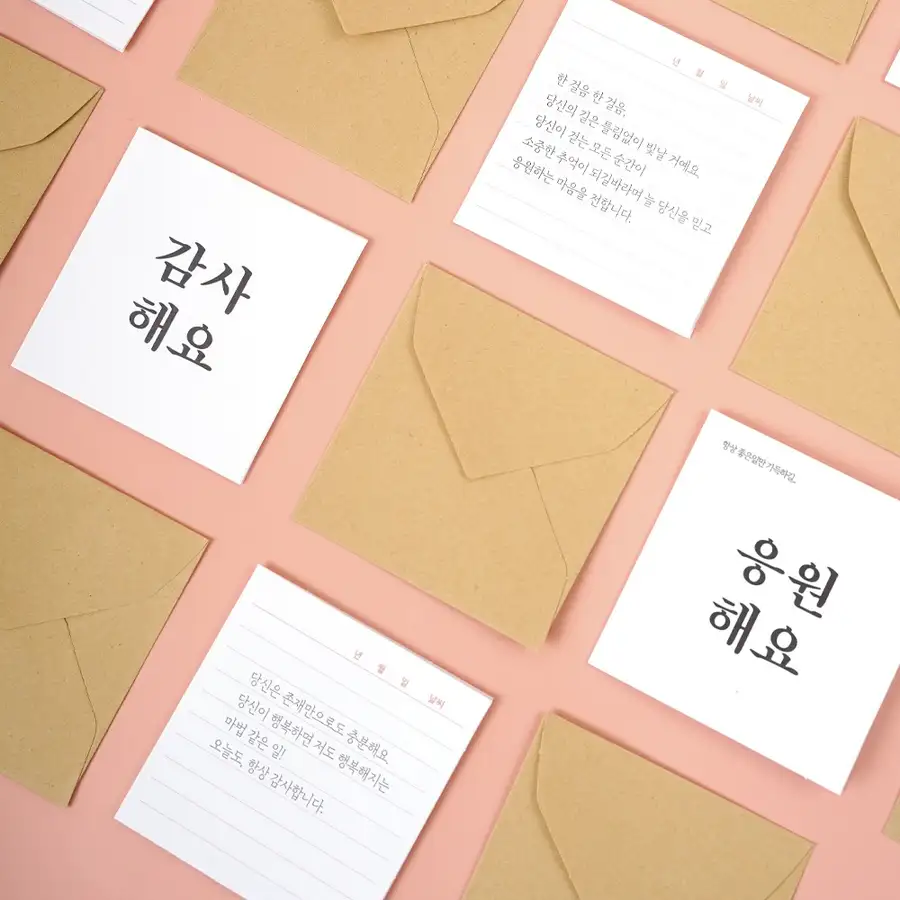 년 월 일 날씨
한 걸음 한 걸음,
당신의 길은 틀림없이 빛날 거예요.
당신이 걷는 모든 순간이
소중한 추억이 되길바라며 늘 당신을 믿고
응원하는 마음을 전합니다.
감사
해요
항상 좋은일만 가득하길.
응원
해요
년 월 일 날씨
당신은 존재만으로도 충분해요.
당신이 행복하면 저도 행복해지는
마법 같은 일!
오늘도, 항상 감사합니다.